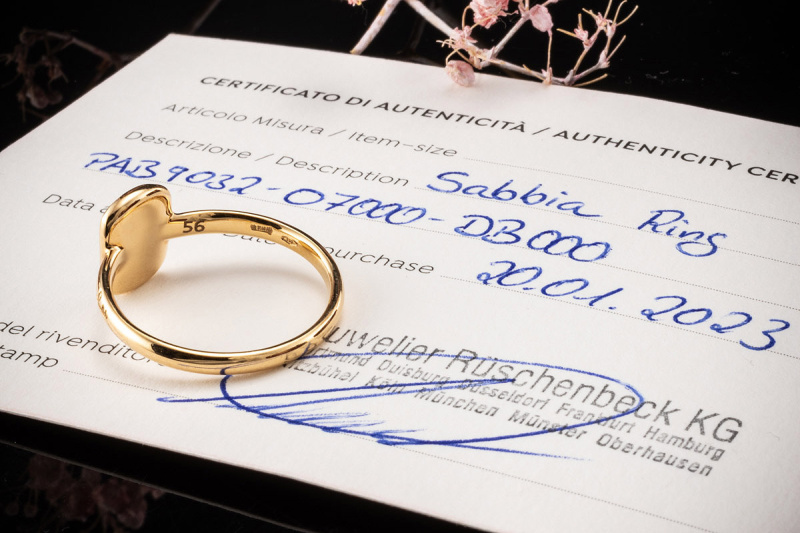 CERTIFICATO DI AUTENTICITÀ / AUTHENTICITY CER
Articolo Misura / Item-size
Descrizione / Description Sabbia Ring
PAB9032-07000-DB000
Data purchase 20.01.2023
56
del rivenditore
uwelier Rüschenbeck KG
Duisburg Düsseldorf Frankfurt Hamburg
Köln München Münster Oberhausen